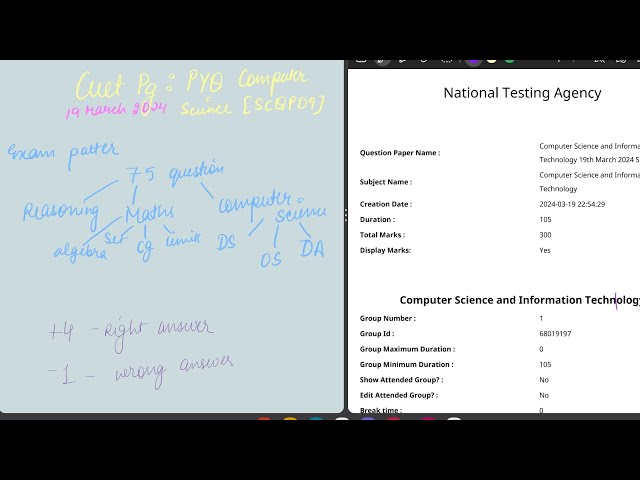 Cuet Pg : PYQ Computer
19 March 2024 Science [SCQP09]
Exam patter
75 question
Reasoning Maths Computer Science
algebra set Cg limits DS OS DA
+4 - right answer
-1 - wrong answer
National Testing Agency
Question Paper Name : Computer Science and Informa
Technology 19th March 2024 S
Subject Name : Computer Science and Informa
Technology
Creation Date : 2024-03-19 22:54:29
Duration : 105
Total Marks : 300
Display Marks: Yes
Computer Science and Information Technology
Group Number : 1
Group Id : 68019197
Group Maximum Duration : 0
Group Minimum Duration : 105
Show Attended Group? : No
Edit Attended Group? : No
Break time : 0